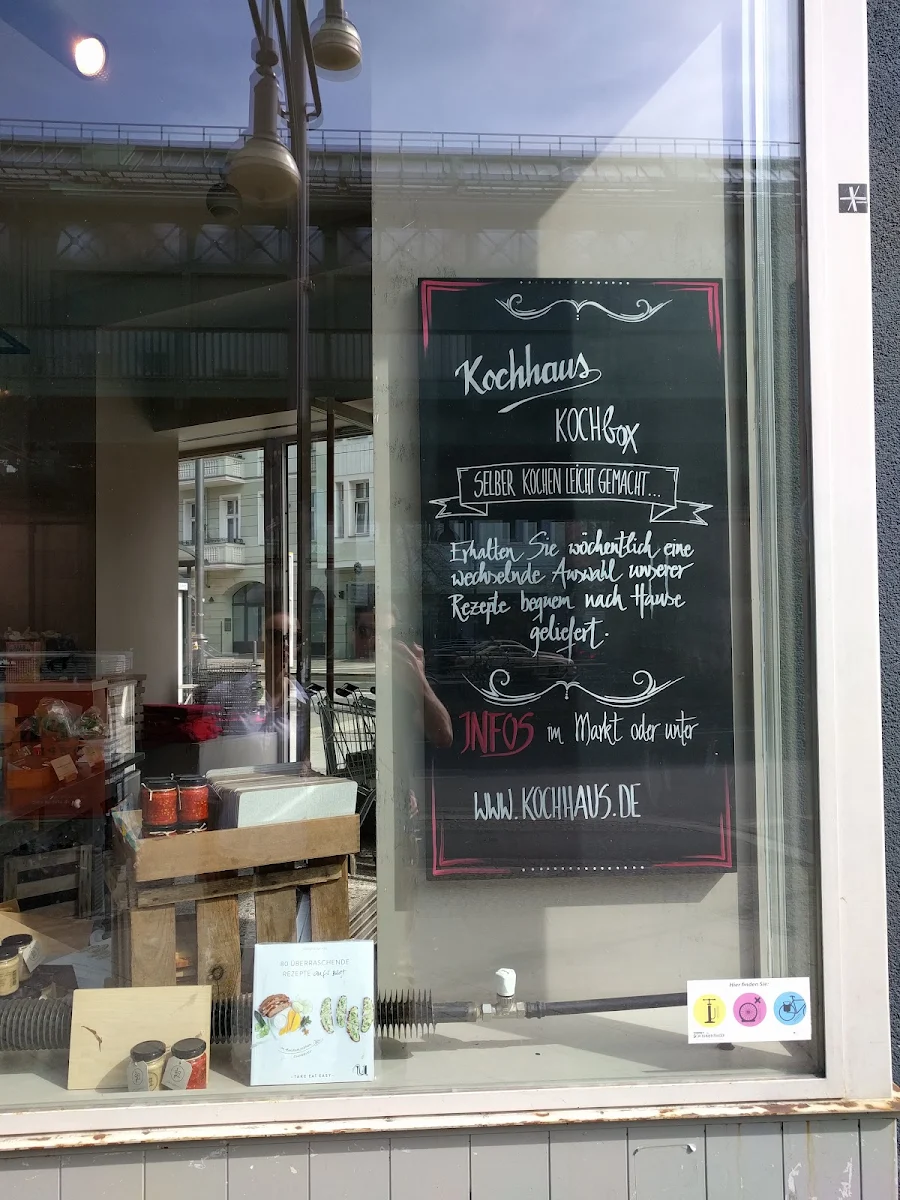 Kochhaus
KOCHbox
SELBER KOCHEN LEICHT GEMACHT...
Erhalten Sie wöchentlich eine
wechselnde Auswahl unserer
Rezepte bequem nach Hause
geliefert.
INFOS im Markt oder unter
WWW.KOCHHAUS.DE
60 ÜBERRASCHENDE
REZEPTE
Hier finden Sie: